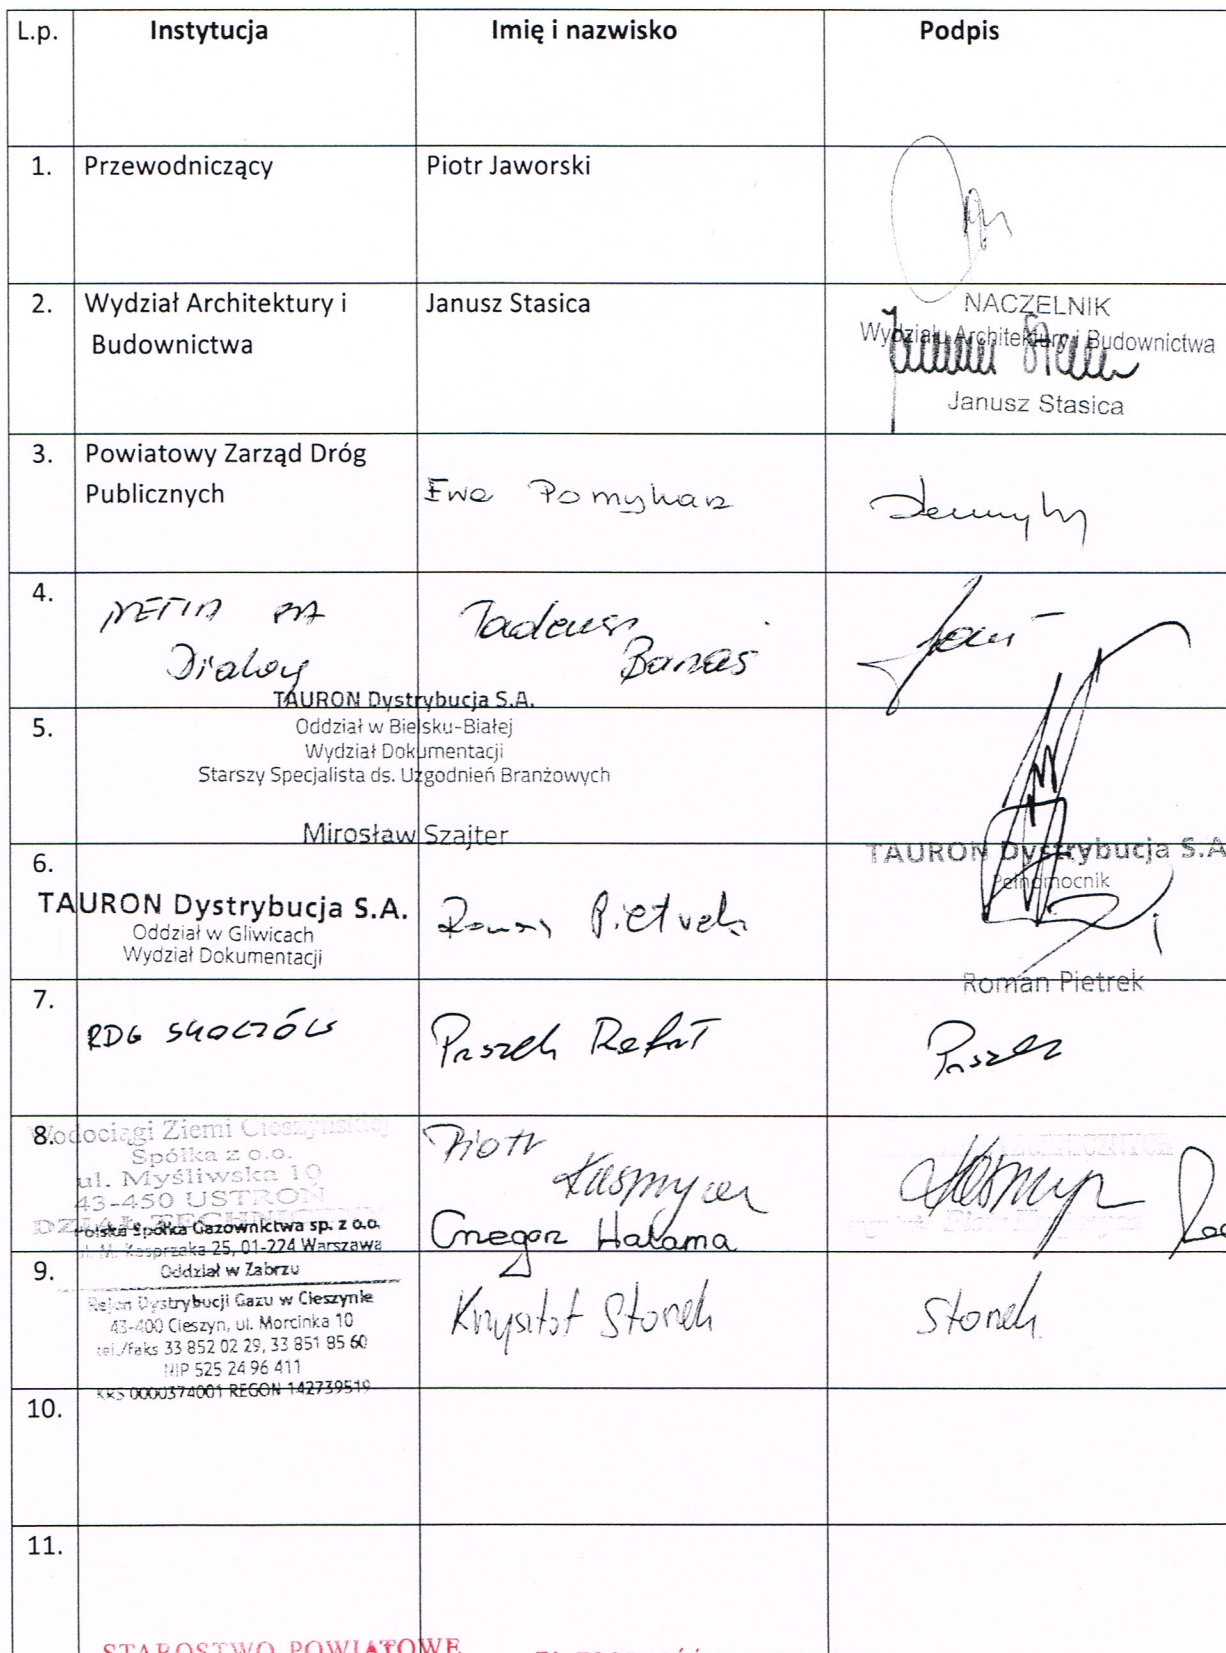 L.p. Instytucja Imię i nazwisko Podpis
1. Przewodniczący Piotr Jaworski
2. Wydział Architektury i Janusz Stasica
Budownictwa
NACZELNIK
Wydziału Architektury i Budownictwa
Janusz Stasica
3. Powiatowy Zarząd Dróg
Publicznych
Ewa Pomykacz
4. NETIA
Dialog
Tadeusz
Banaś
TAURON Dystrybucja S.A.
5. Oddział w Bielsku-Białej
Wydział Dokumentacji
Starszy Specjalista ds. Uzgodnień Branżowych
Mirosław Szajter
6.
TAURON Dystrybucja S.A.
Oddział w Gliwicach
Wydział Dokumentacji
Roman Pietrek
TAURON Dystrybucja S.A
Pełnomocnik
Roman Pietrek
7.
RDG SKOCZÓW Paszek Rafał Paszek
8. Wodociągi Ziemi Cieszyńskiej
Spółka z o.o.
ul. Myśliwska 10
43-450 USTROŃ
DZIAŁ TECHNICZNY
Piotr
Grzegorz Hałama
Polska Spółka Gazownictwa sp. z o.o.
ul. M. Kasprzaka 25, 01-224 Warszawa
9. Oddział w Zabrzu
Rejon Dystrybucji Gazu w Cieszynie
43-400 Cieszyn, ul. Morcinka 10
tel./faks 33 852 02 29, 33 851 85 60
NIP 525 24 96 411
KRS 0000374001 REGON 142739519
Krzysztof Stonek Stonek
10.
11.
STAROSTWO POWIATOWE